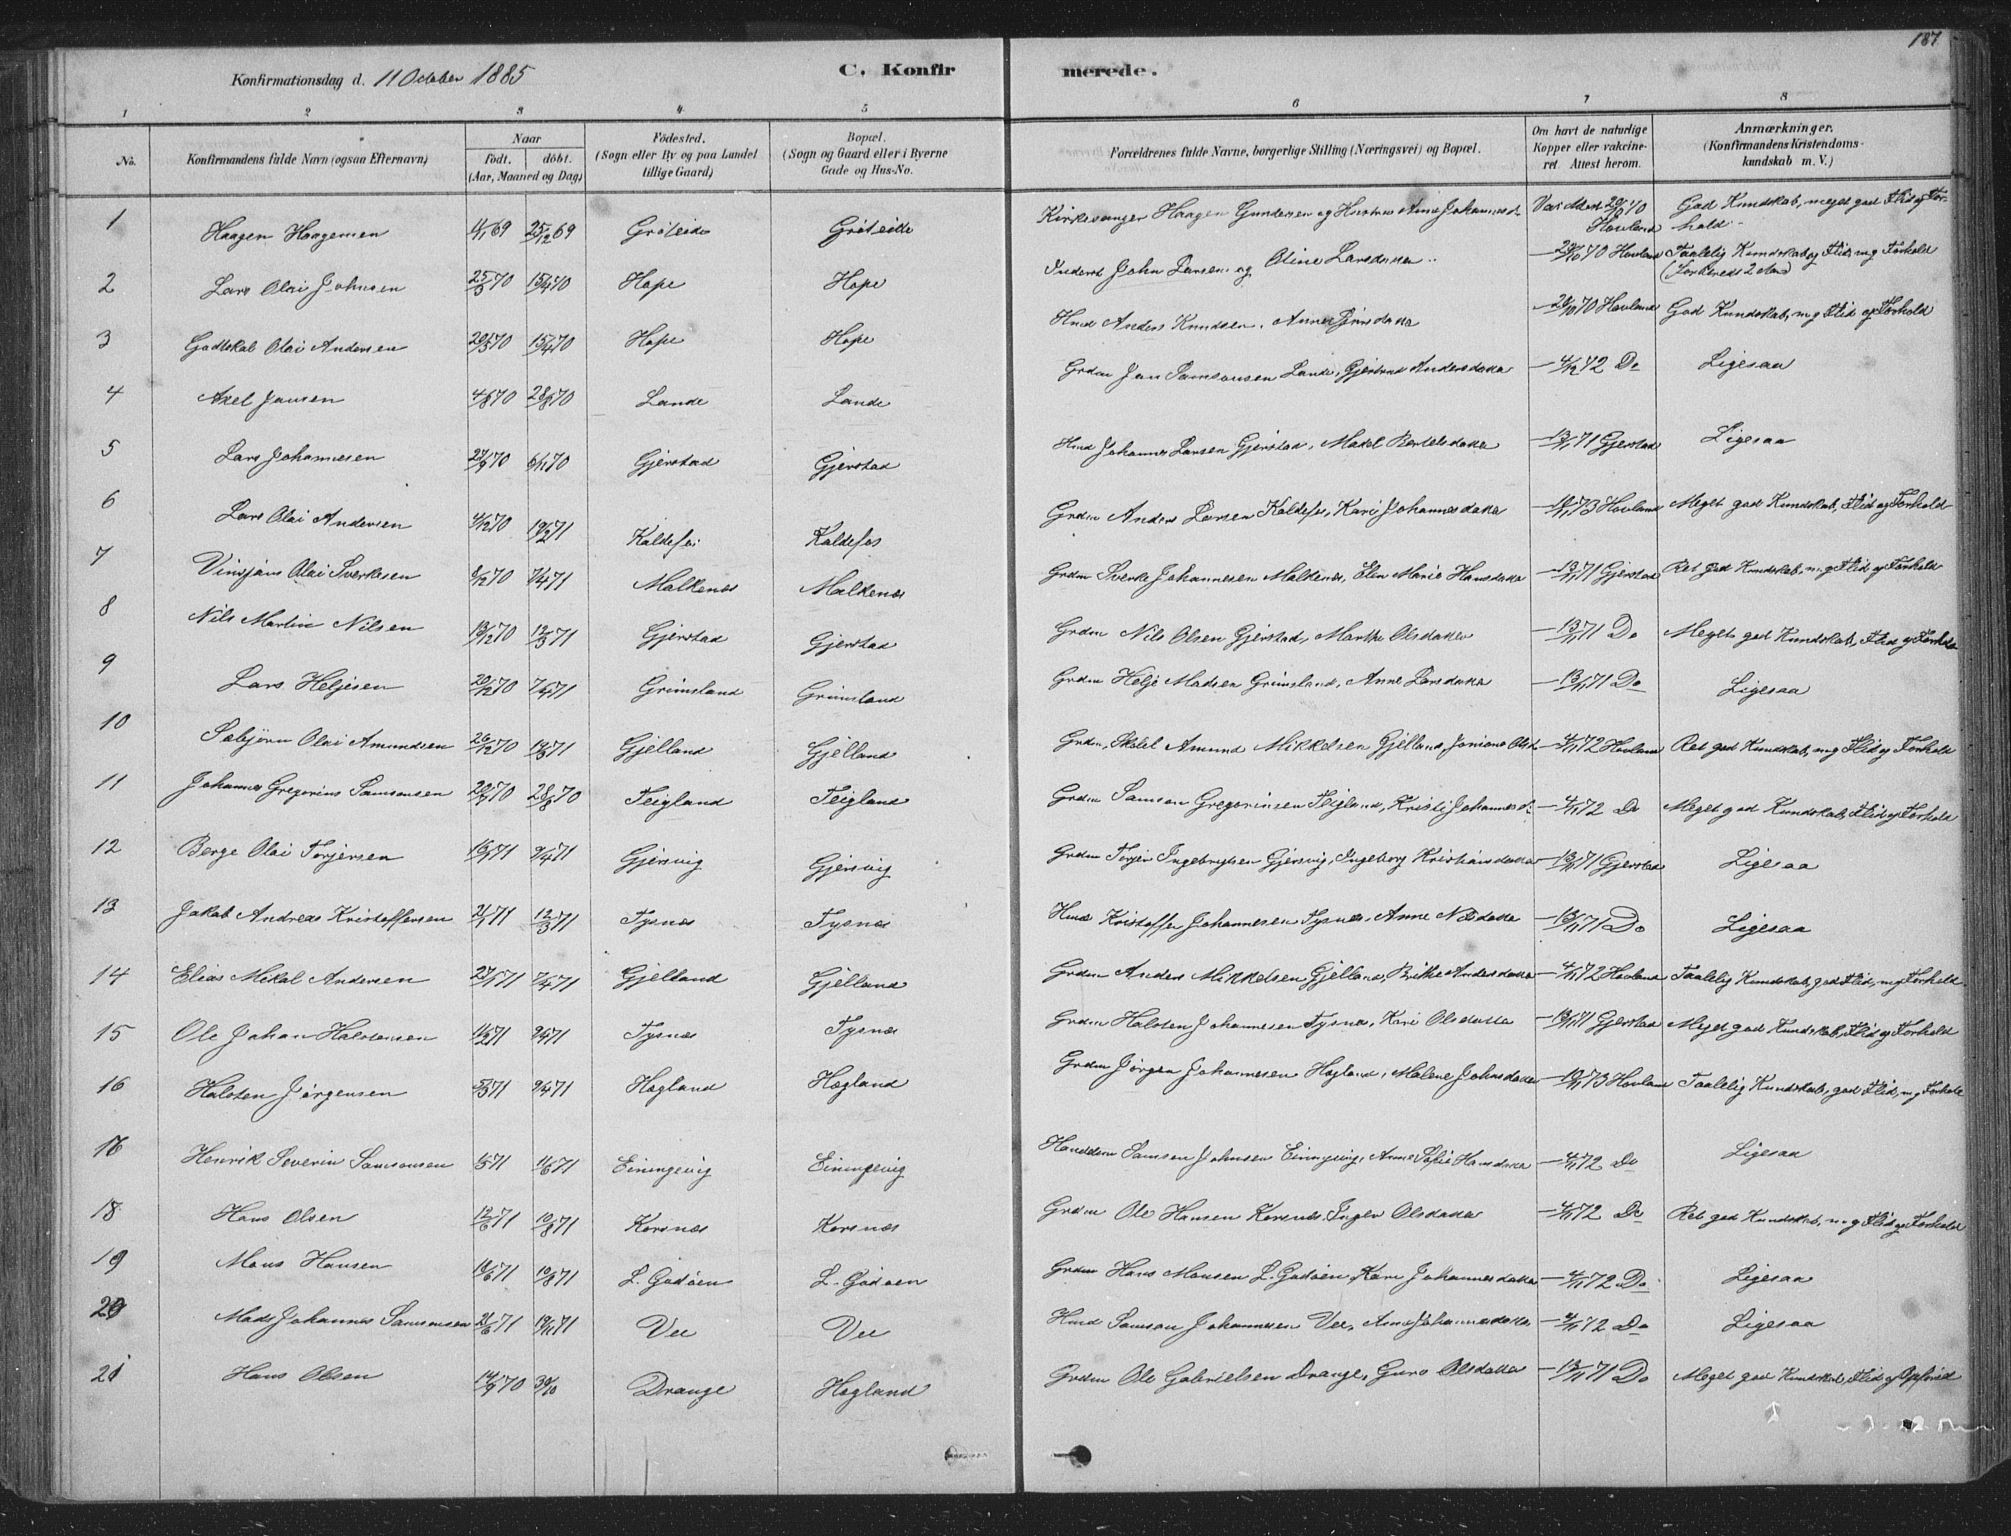 187
Konfirmationsdag d. 11 October 1885
C. Konfirmerede.
1 2 3 4 5 6 7 8
No.
Konfirmandens fulde Navn (ogsaa Efternavn)
Naar
født. døbt.
(Aar, Maaned og Dag)
Fødested.
(Sogn eller By og paa Landet
tillige Gaard)
Bopæl.
(Sogn og Gaard eller i Byerne
Gade og Hus-No.
Forældrenes fulde Navne, borgerlige Stilling (Næringsvei) og Bopæl.
Om havt de naturlige
Kopper eller vakcine-
ret. Attest herom.
Anmærkninger.
(Konfirmandens Kristendoms-
kundskab m. V.)
1 Haagen Haagensen 4/11 69 25/12 69 Gröteide Gröteide Kirkesanger Haagen Gundersen og Hustru Anne Johannesd. Hovland God Kundskab, meget god Flid og Forhold
2 Lars Olai Johnsen 25/3 70 15/4 70 Hope Hope Inderst John Larsen og Oline Larsdatter 29/10 70 Hovland Taalelig Kundskab og Flid, m g Forhold
3 Godtskal Olai Andersen 15/4 70 Hope Hope Hmd Anders Knudsen, Anne 70 Hovland God Kundskab, m g Flid og Forhold
4 Axel Jansen 4/8 70 28/8 70 Lande Lande Grdm Jan Samsonsen Lande, Gjertrud Andersdatter 72 Do Ligesaa
5 Lars Johannesen 27/9 70 6/11 70 Gjerstad Gjerstad Hmd Johannes Larsen Gjerstad, Madel Bertelsdatter 13/11 71 Gjerstad Ligesaa
6 Lars Olai Andersen 4/12 70 19/2 71 Kaldefos Kaldefos Grdm Anders Larsen Kaldefos, Kari Johannesdatter 73 Hovland Meget god Kundskab, Flid og Forhold
7 Vinsjans Olai Sverkesen 8/12 70 7/4 71 Malkenes Malkenes Grdm Sverke Johannesen Malkenes, Elen Marie Hansdatter 13/11 71 Gjerstad Ret god Kundskab, m g Flid og Forhold
8 Nils Martin Nilsen 13/12 70 12/3 71 Gjerstad Gjerstad Grdm Nils Olsen Gjerstad, Marthe Olsdatter 13/11 71 Do Meget god Kundskab, Flid og Forhold
9 Lars Heljesen 20/12 70 7/4 71 Grimsland Grimsland Grdm Helje Madsen Grimsland, Anne Larsdatter 13/11 71 Do Ligesaa
10 Sebjörn Olai Amundsen 26/12 70 71 Gjelland Gjelland Grdm, Skolel Amund Mikkelsen Gjelland 4/11 72 Hovland Ret god Kundskab, m g Flid og Forhold
11 Johannes Gregorius Samsonsen 70 28/8 70 Teigland Teigland Grdm Samson Gregoriusen Teigland, Kristi Johannesd. 4/11 72 Do Meget god Kundskab, Flid og Forhold
12 Berge Olai Torjersen 16/1 71 9/4 71 Gjersvig Gjersvig Grdm Torjer Ingebrigtsen Gjersvig, Ingeborg Kristiansdatter 13/11 71 Gjerstad Ligesaa
13 Jakob Andreas Kristoffersen 71 12/3 71 Tysnes Tysnes Hmd Kristoffer Johannesen Tysnes, Anne Nilsdatter 13/11 71 Do Ligesaa
14 Elias Mikal Andersen 27/1 71 7/4 71 Gjelland Gjelland Grdm Anders Mikkelsen Gjelland, Brithe Andersdatter 4/11 72 Hovland Taalelig Kundskab, god Flid, m g Forhold
15 Ole Johan Halstensen 71 9/4 71 Tysnes Tysnes Grdm Halsten Johannesen Tysnes, Kari Olsdatter 13/11 71 Gjerstad Meget god Kundskab, Flid og Forhold
16 Halsten Jörgensen 5/3 71 9/4 71 Hogland Hogland Grdm Jörgen Johannesen Hogland, Malene Johnsdatter 73 Hovland Taalelig Kundskab, god Flid, m g Forhold
17 Henrik Severin Samsonsen 71 11/6 71 Einingevig Einingevig Handelsm Samson Johnsen Einingevig, Anne Sofie Hansdatter 4/11 72 Do Ligesaa
18 Hans Olsen 12/6 71 10/8 71 Korsnes Korsnes Grdm Ole Hansen Korsnes, Inger Olsdatter 4/11 72 Do Ret god Kundskab, m g Flid og Forhold
19 Mons Hansen 14/6 71 10/8 71 L. Godöen L. Godöen Grdm Hans Monsen L. Godöen, Kari Johannesdatter 4/11 72 Do Ligesaa
20 Mads Johannes Samsonsen 21/6 71 71 Vee Vee Hmd Samson Johannesen Vee, Anne Johannesdatter 72 Do Ligesaa
21 Hans Olsen 14/9 70 30/10 Drange Hogland Grdm Ole Gabrielsen Drange, Guro Olsdatter 13/11 71 Do Meget god Kundskab, Flid og Opførsel